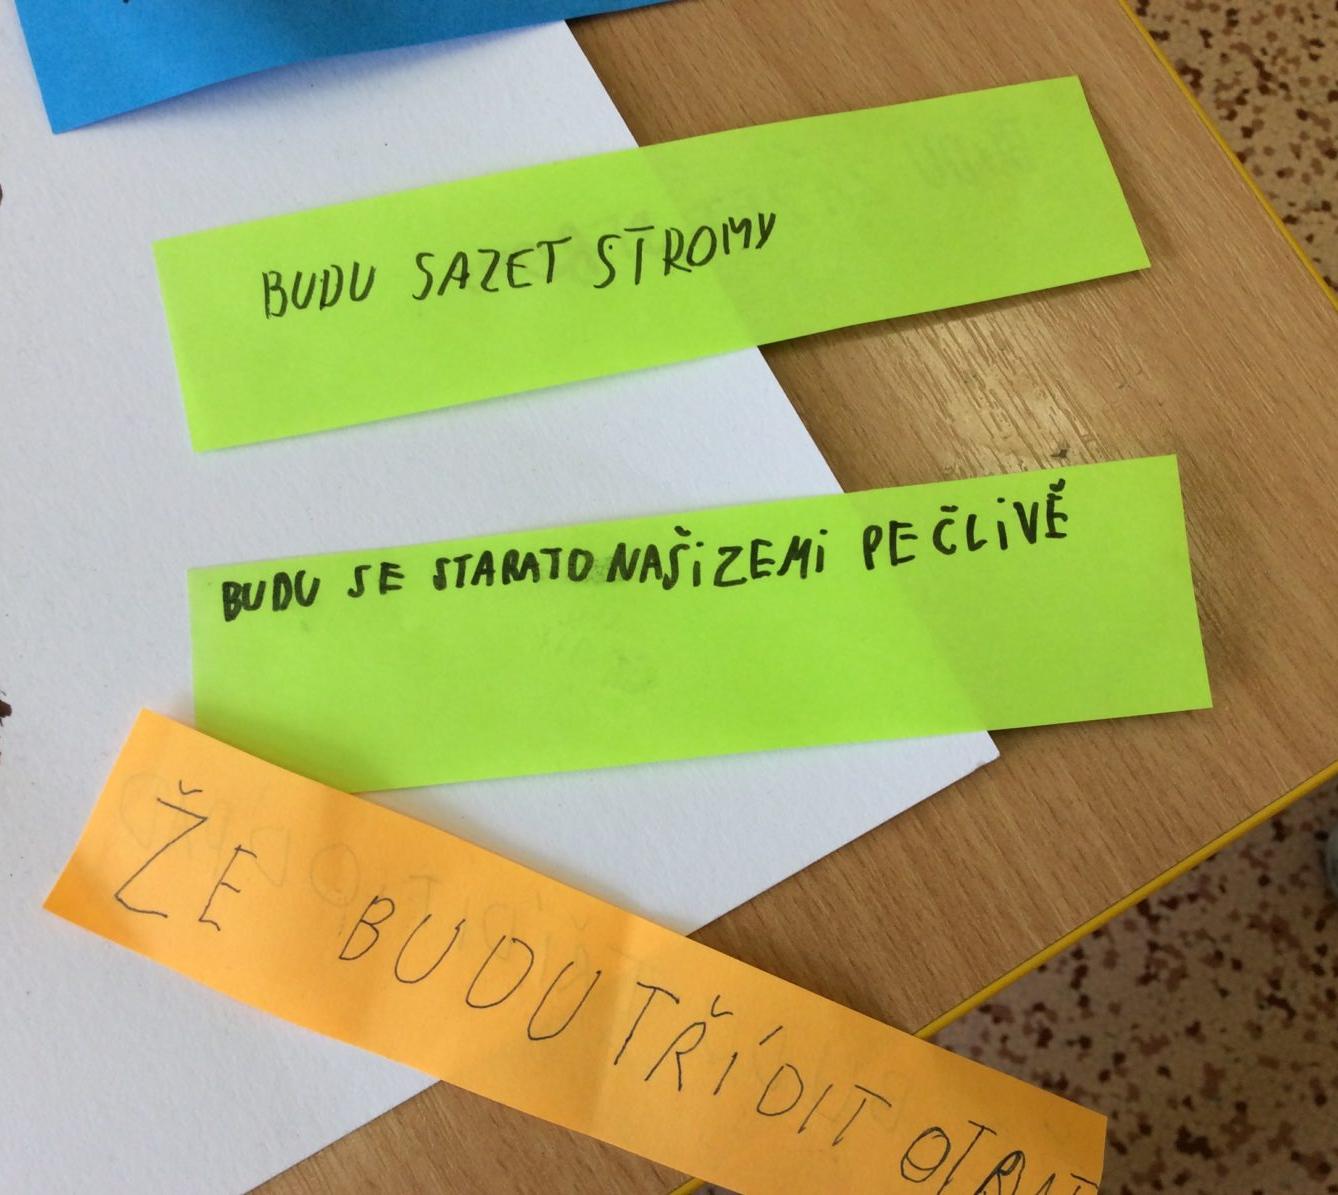 BUDU SAZET STROMY
BUDU SE STARATO NAŠI ZEMI PEČLIVĚ
ŽE BUDU TŘÍDIT